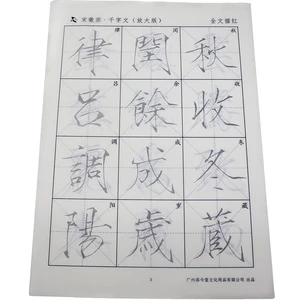 宋徽宗·千字文（放大版） 全文描红
秋收冬藏
閏餘成歲
律呂調陽
秋 收 冬 藏
闰 余 成 岁
律 吕 调 阳
文化用品有限公司 出品